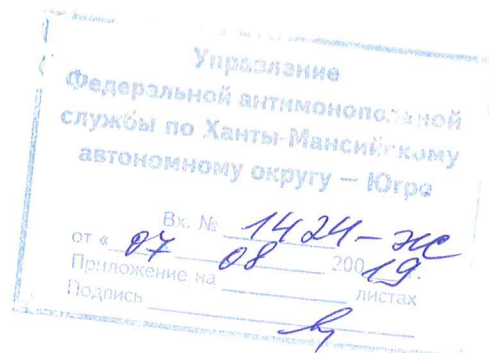 Управление
Федеральной антимонопольной
службы по Ханты-Мансийскому
автономному округу – Югре
Вх. № 1424-ЖС
от « 07 08 200 19 г.
Приложение на листах
Подпись